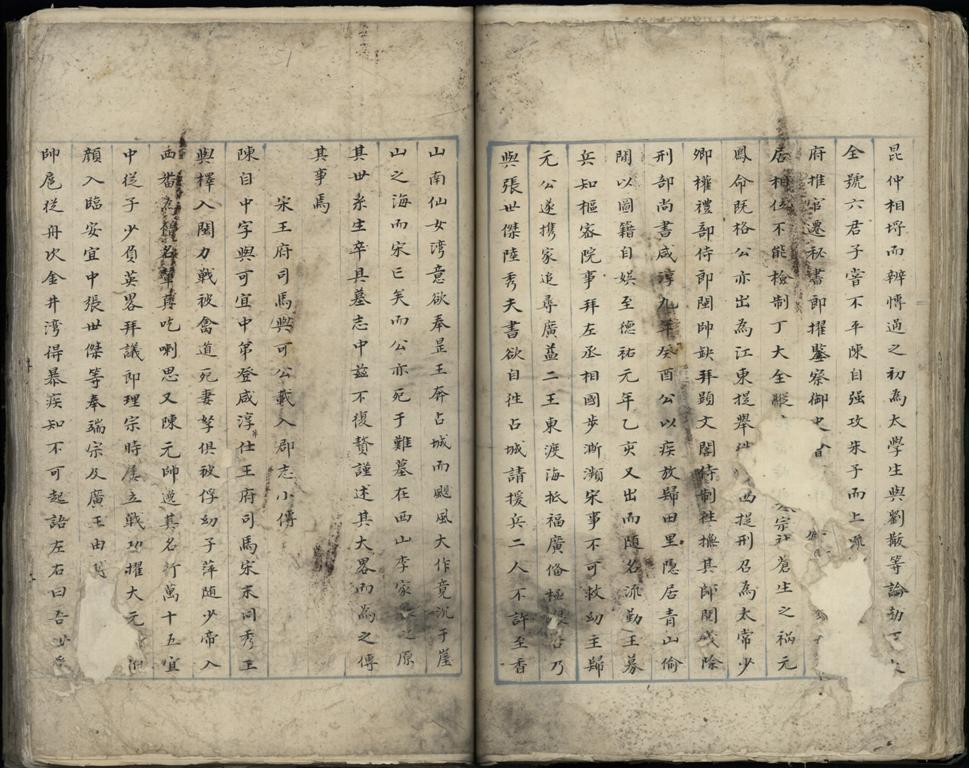 昆仲相埒而辨博過之初為太學生與劉黻等論劾丁大
全號六君子嘗不平陳自强攻朱子而上疏
府推官遷秘書郎擢鑒察御史
居相位不能檢制丁大全縱宗社蒼生之禍元
鳳命既格公亦出為江東提舉西提刑召為太常少
卿權禮部侍郎閩師缺拜顕文閣侍制徃撫其師閱歲除
刑部尚書咸淳九年癸酉公以疾放歸田里隱居青山偷
閒以圖籍自娯至德祐元年乙亥又出而随名流勤王募
兵知樞密院事拜左丞相國步漸瀕宋事不可救幼主歸
元公遂携家追尋廣益二王東渡海抵福廣俻極艱苦乃
與張世傑陸秀夫書欲自徃占城請援兵二人不許至香
山南仙女湾意欲奉昰王奔占城而颶風大作竟沉于崖
山之海而宋亡矣而公亦死于難墓在西山李家之原
其世系生卒具墓志中兹不復贅謹述其大畧而為之傳
其事焉
宋王府司馬與可公載入郡志小傳
陳自中字與可宜中弟登咸淳仕王府司馬宋末同秀王
與擇入閩力戰被禽道死妻孥俱被俘幼子萍随少帝入
西畨為僧名輦真吃喇思又陳元帥逸其名行萬十五宜
中従子少負英畧拜議郎理宗時屡立戰功擢大元
顔入臨安宜中張世傑等奉端宗及廣王由
帥扈従舟次金井湾得暴疾知不可起語左右曰吾